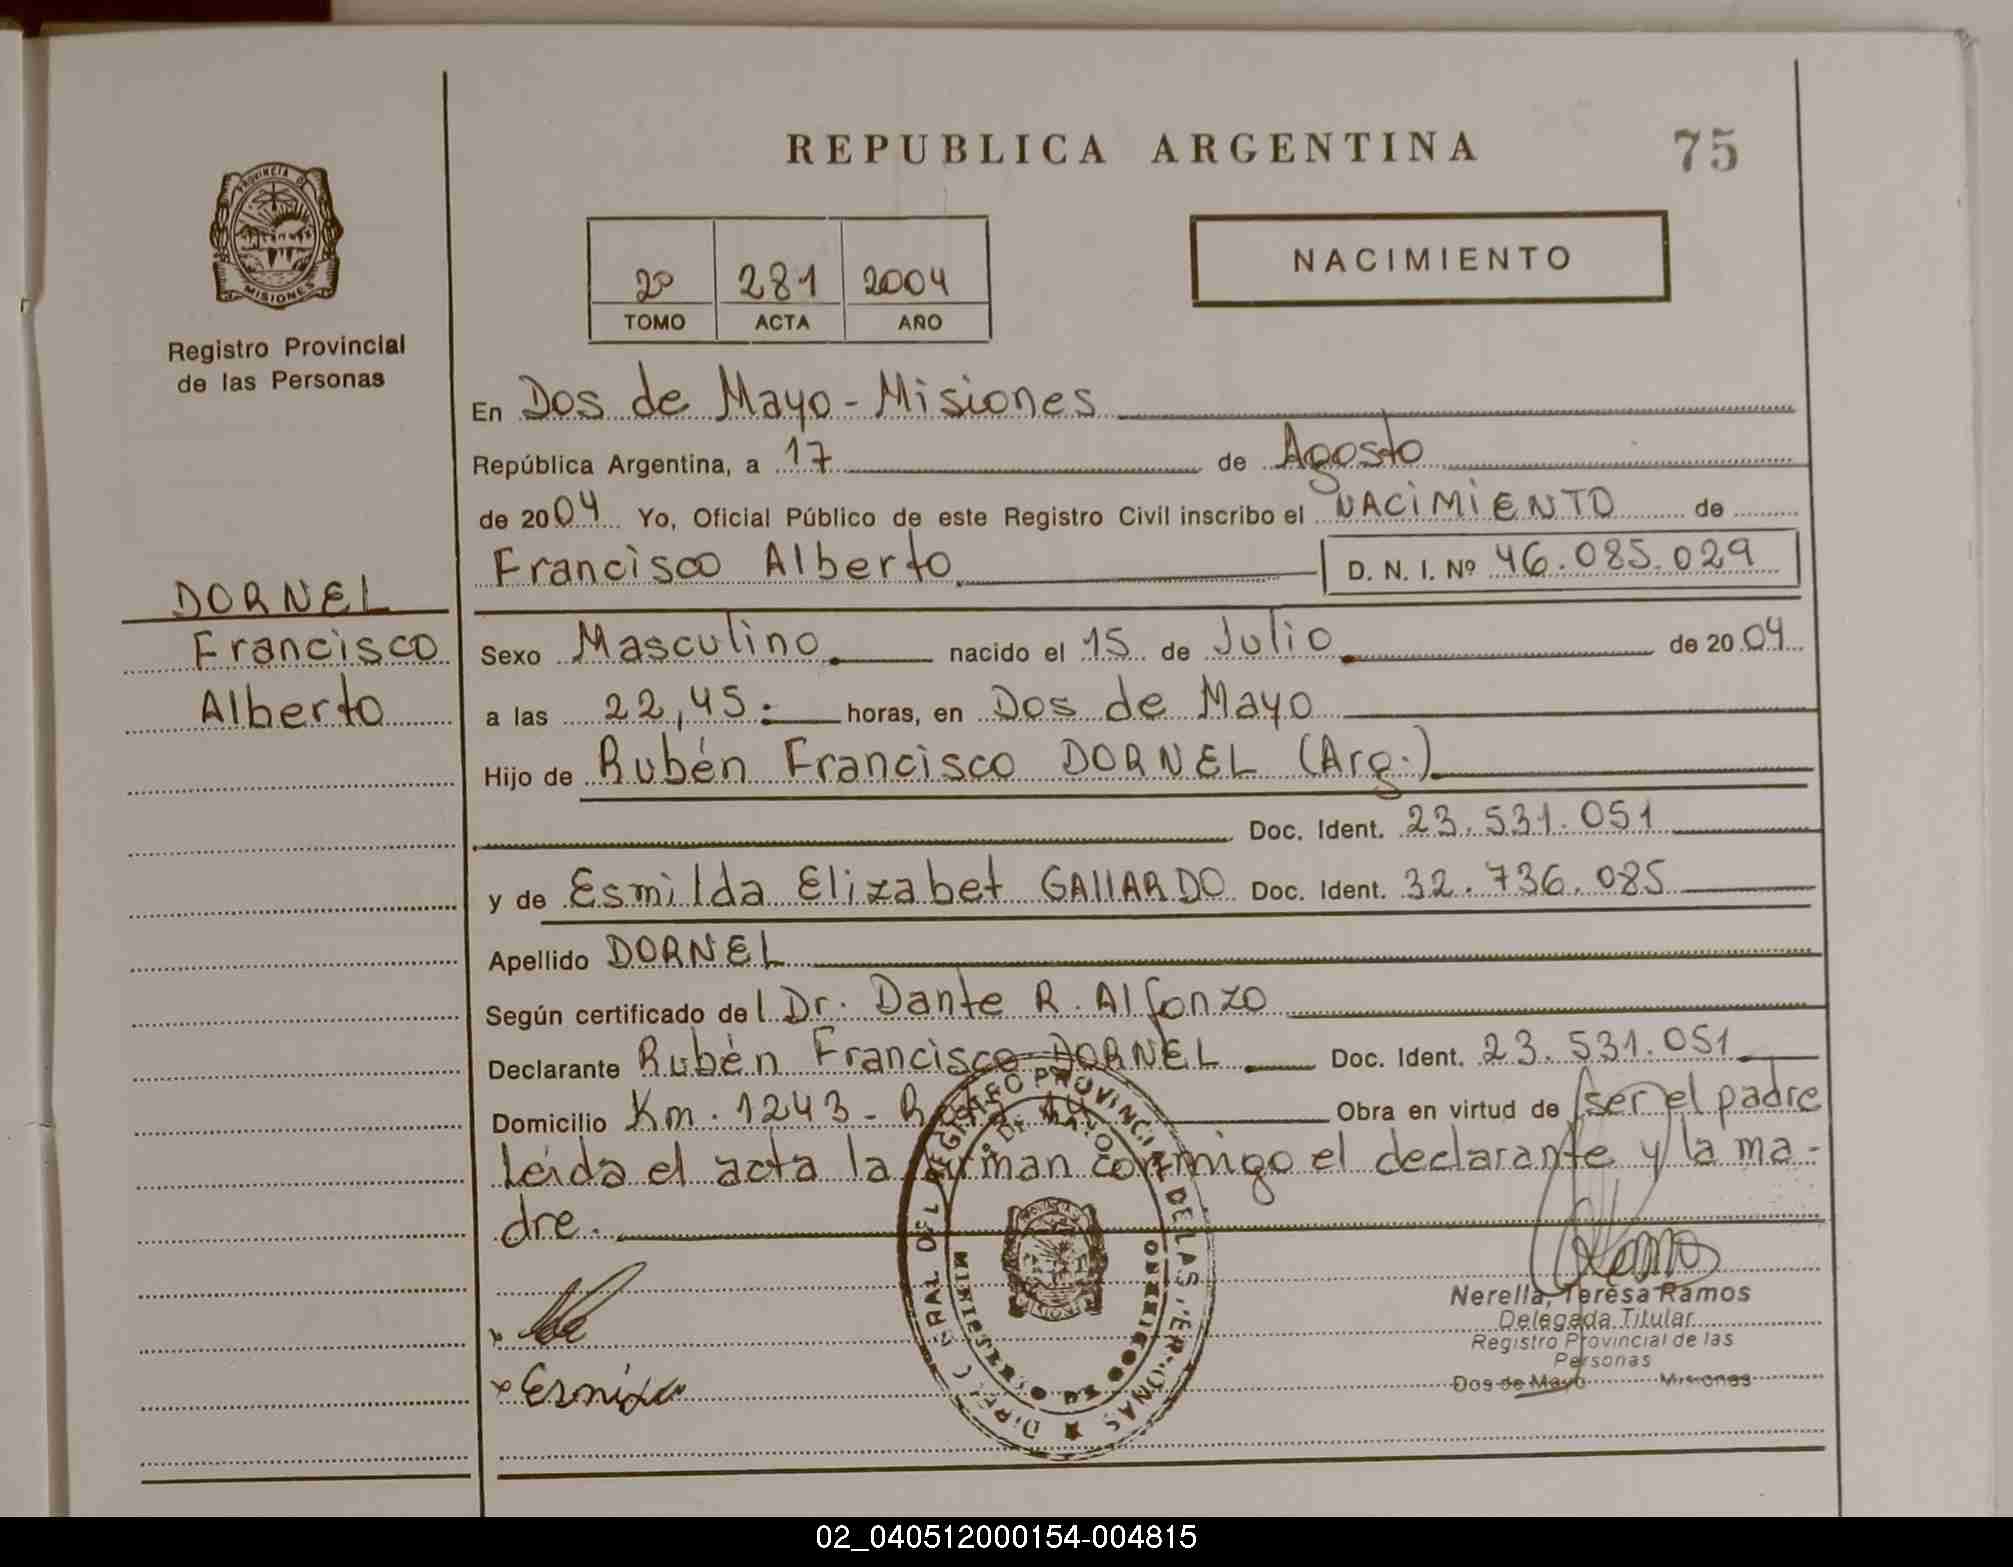 REPUBLICA ARGENTINA
75
PROVINCIA DE
MISIONES
Registro Provincial
de las Personas
2º 281 2004
TOMO ACTA AÑO
NACIMIENTO
En Dos de Mayo - Misiones
República Argentina, a 17 de Agosto
de 2004 Yo, Oficial Público de este Registro Civil inscribo el NACIMIENTO de
Francisco Alberto D. N. I. Nº 46.085.029
DORNEL
Francisco
Alberto
Sexo Masculino nacido el 15 de Julio de 2004
a las 22,45 horas, en Dos de Mayo
Hijo de Rubén Francisco DORNEL (Arg.)
Doc. Ident. 23.531.051
y de Esmilda Elizabet GALLARDO Doc. Ident. 32.736.085
Apellido DORNEL
Según certificado del Dr. Dante R. Alfonzo
Declarante Rubén Francisco DORNEL Doc. Ident. 23.531.051
Domicilio Km. 1243 - Ruta 14 Obra en virtud de ser el padre
Leida el acta la firman conmigo el declarante y la ma-
dre.
Nerella, Teresa Ramos
Delegada Titular
Registro Provincial de las
Personas
Dos de Mayo Misiones
MINISTERIO DE GOBIERNO
02_040512000154-004815